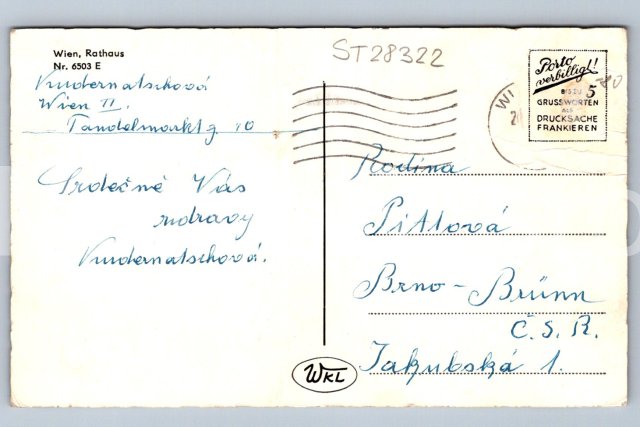 Wien, Rathaus
Nr. 6503 E
Vindernatschová
Wien II.
Tandelmarktg 10
Srdečné Vás
zdravy
Vindernatschová.
ST28322
Porto
verbilligt!
BIS ZU 5
GRUSSWORTEN
ALS
DRUCKSACHE
FRANKIEREN
WI
Rodina
Pitlová
Brno - Brünn
Č.S.R.
Jakubská 1.
WKL